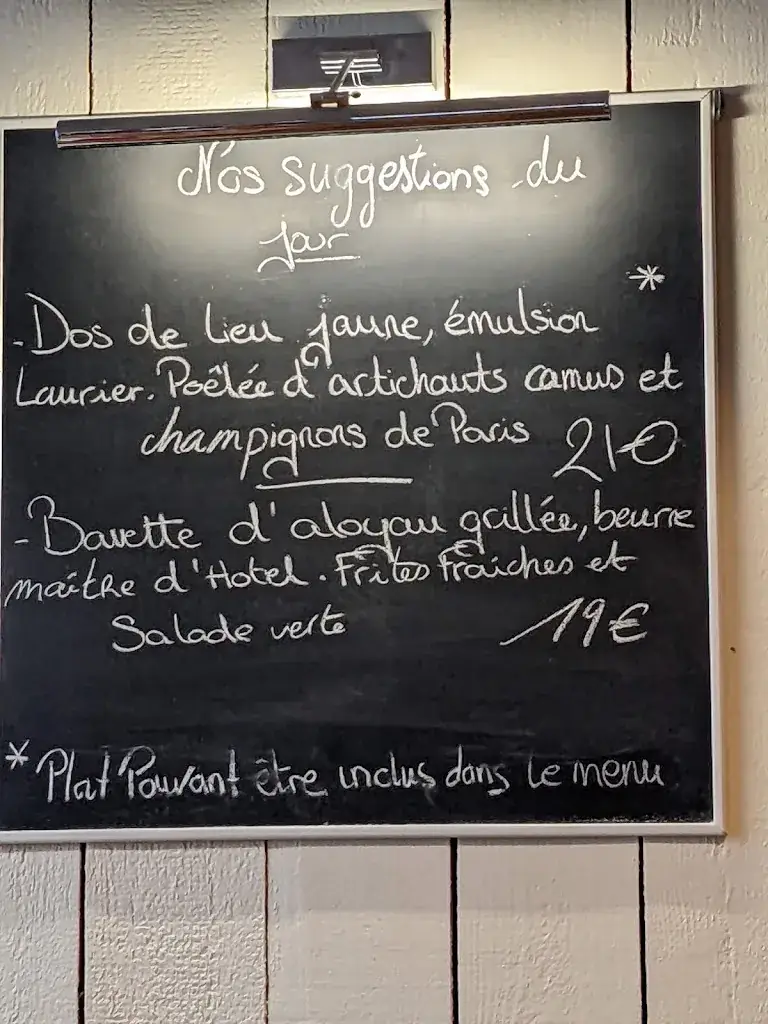 Nos suggestions du
jour
*
- Dos de Lieu jaune, émulsion
Laurier. Poêlée d'artichauts camus et
champignons de Paris 21€
- Bavette d'aloyau grillée, beurre
maître d'Hotel. Frites Fraiches et
Salade verte 19€
* Plat Pouvant être inclus dans le menu